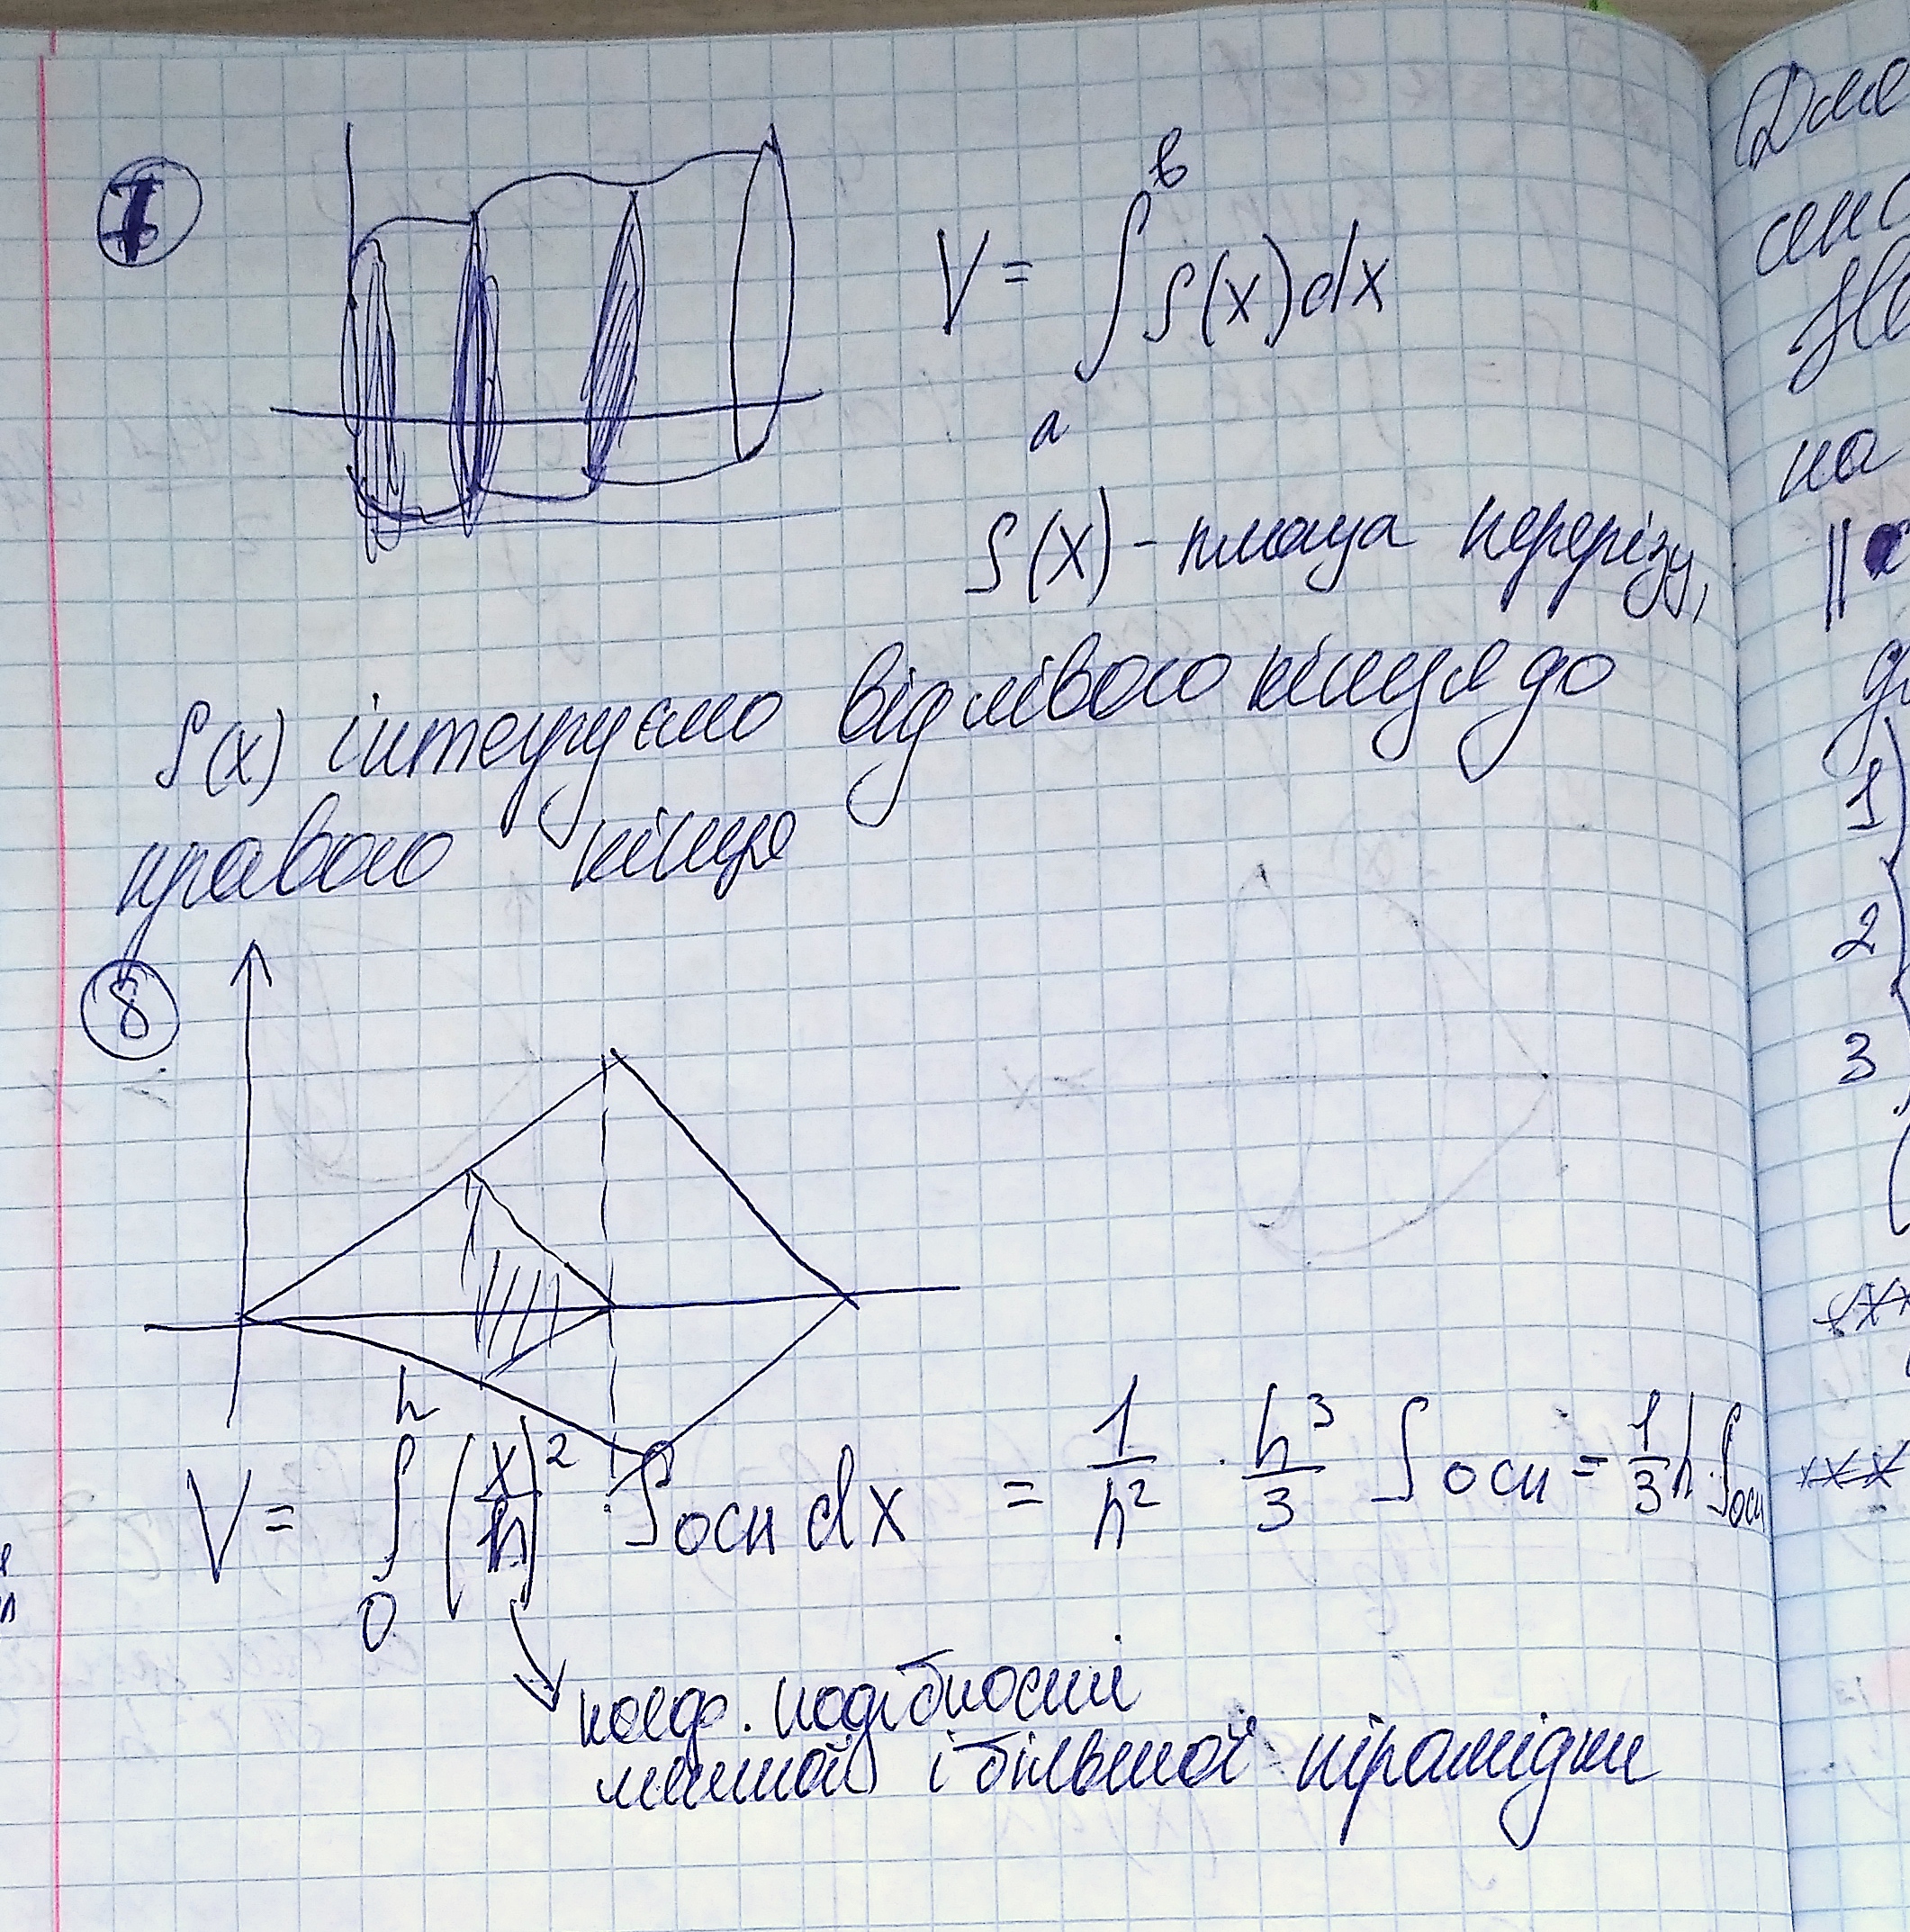 7
V = ∫ₐᵇ S(x)dx
S(x) - площа перерізу,
S(x) інтегруємо від лівого кінця до
правого кінця
8
V = ∫₀ʰ (x/h)² · S осн dx = 1/h² · h³/3 S осн = 1/3 h · S осн
коеф. подібності
меншої і більшої піраміди
на
1
2
3